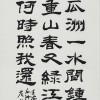 瓜洲一水間鍾
重山春又綠江
何時照我還